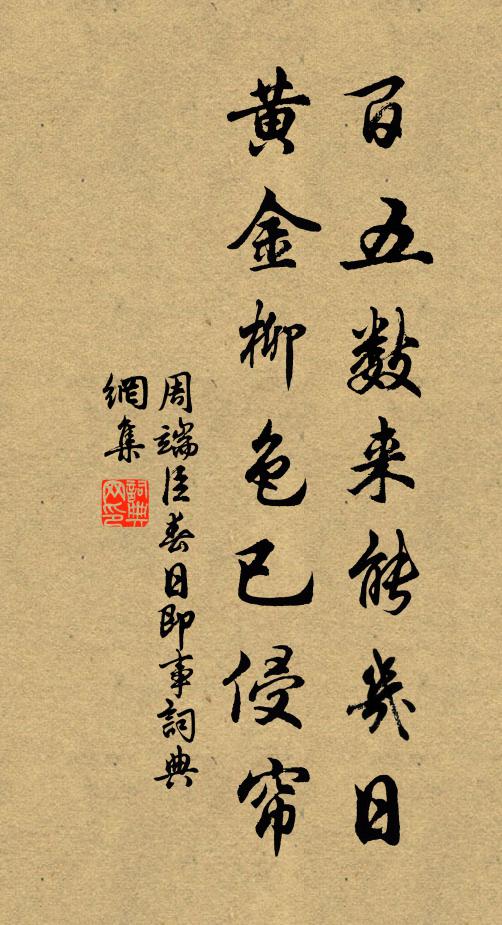 百五数来能几日
黄金柳色已侵帘
周端臣春日即事詞典
網集
詞典
网印